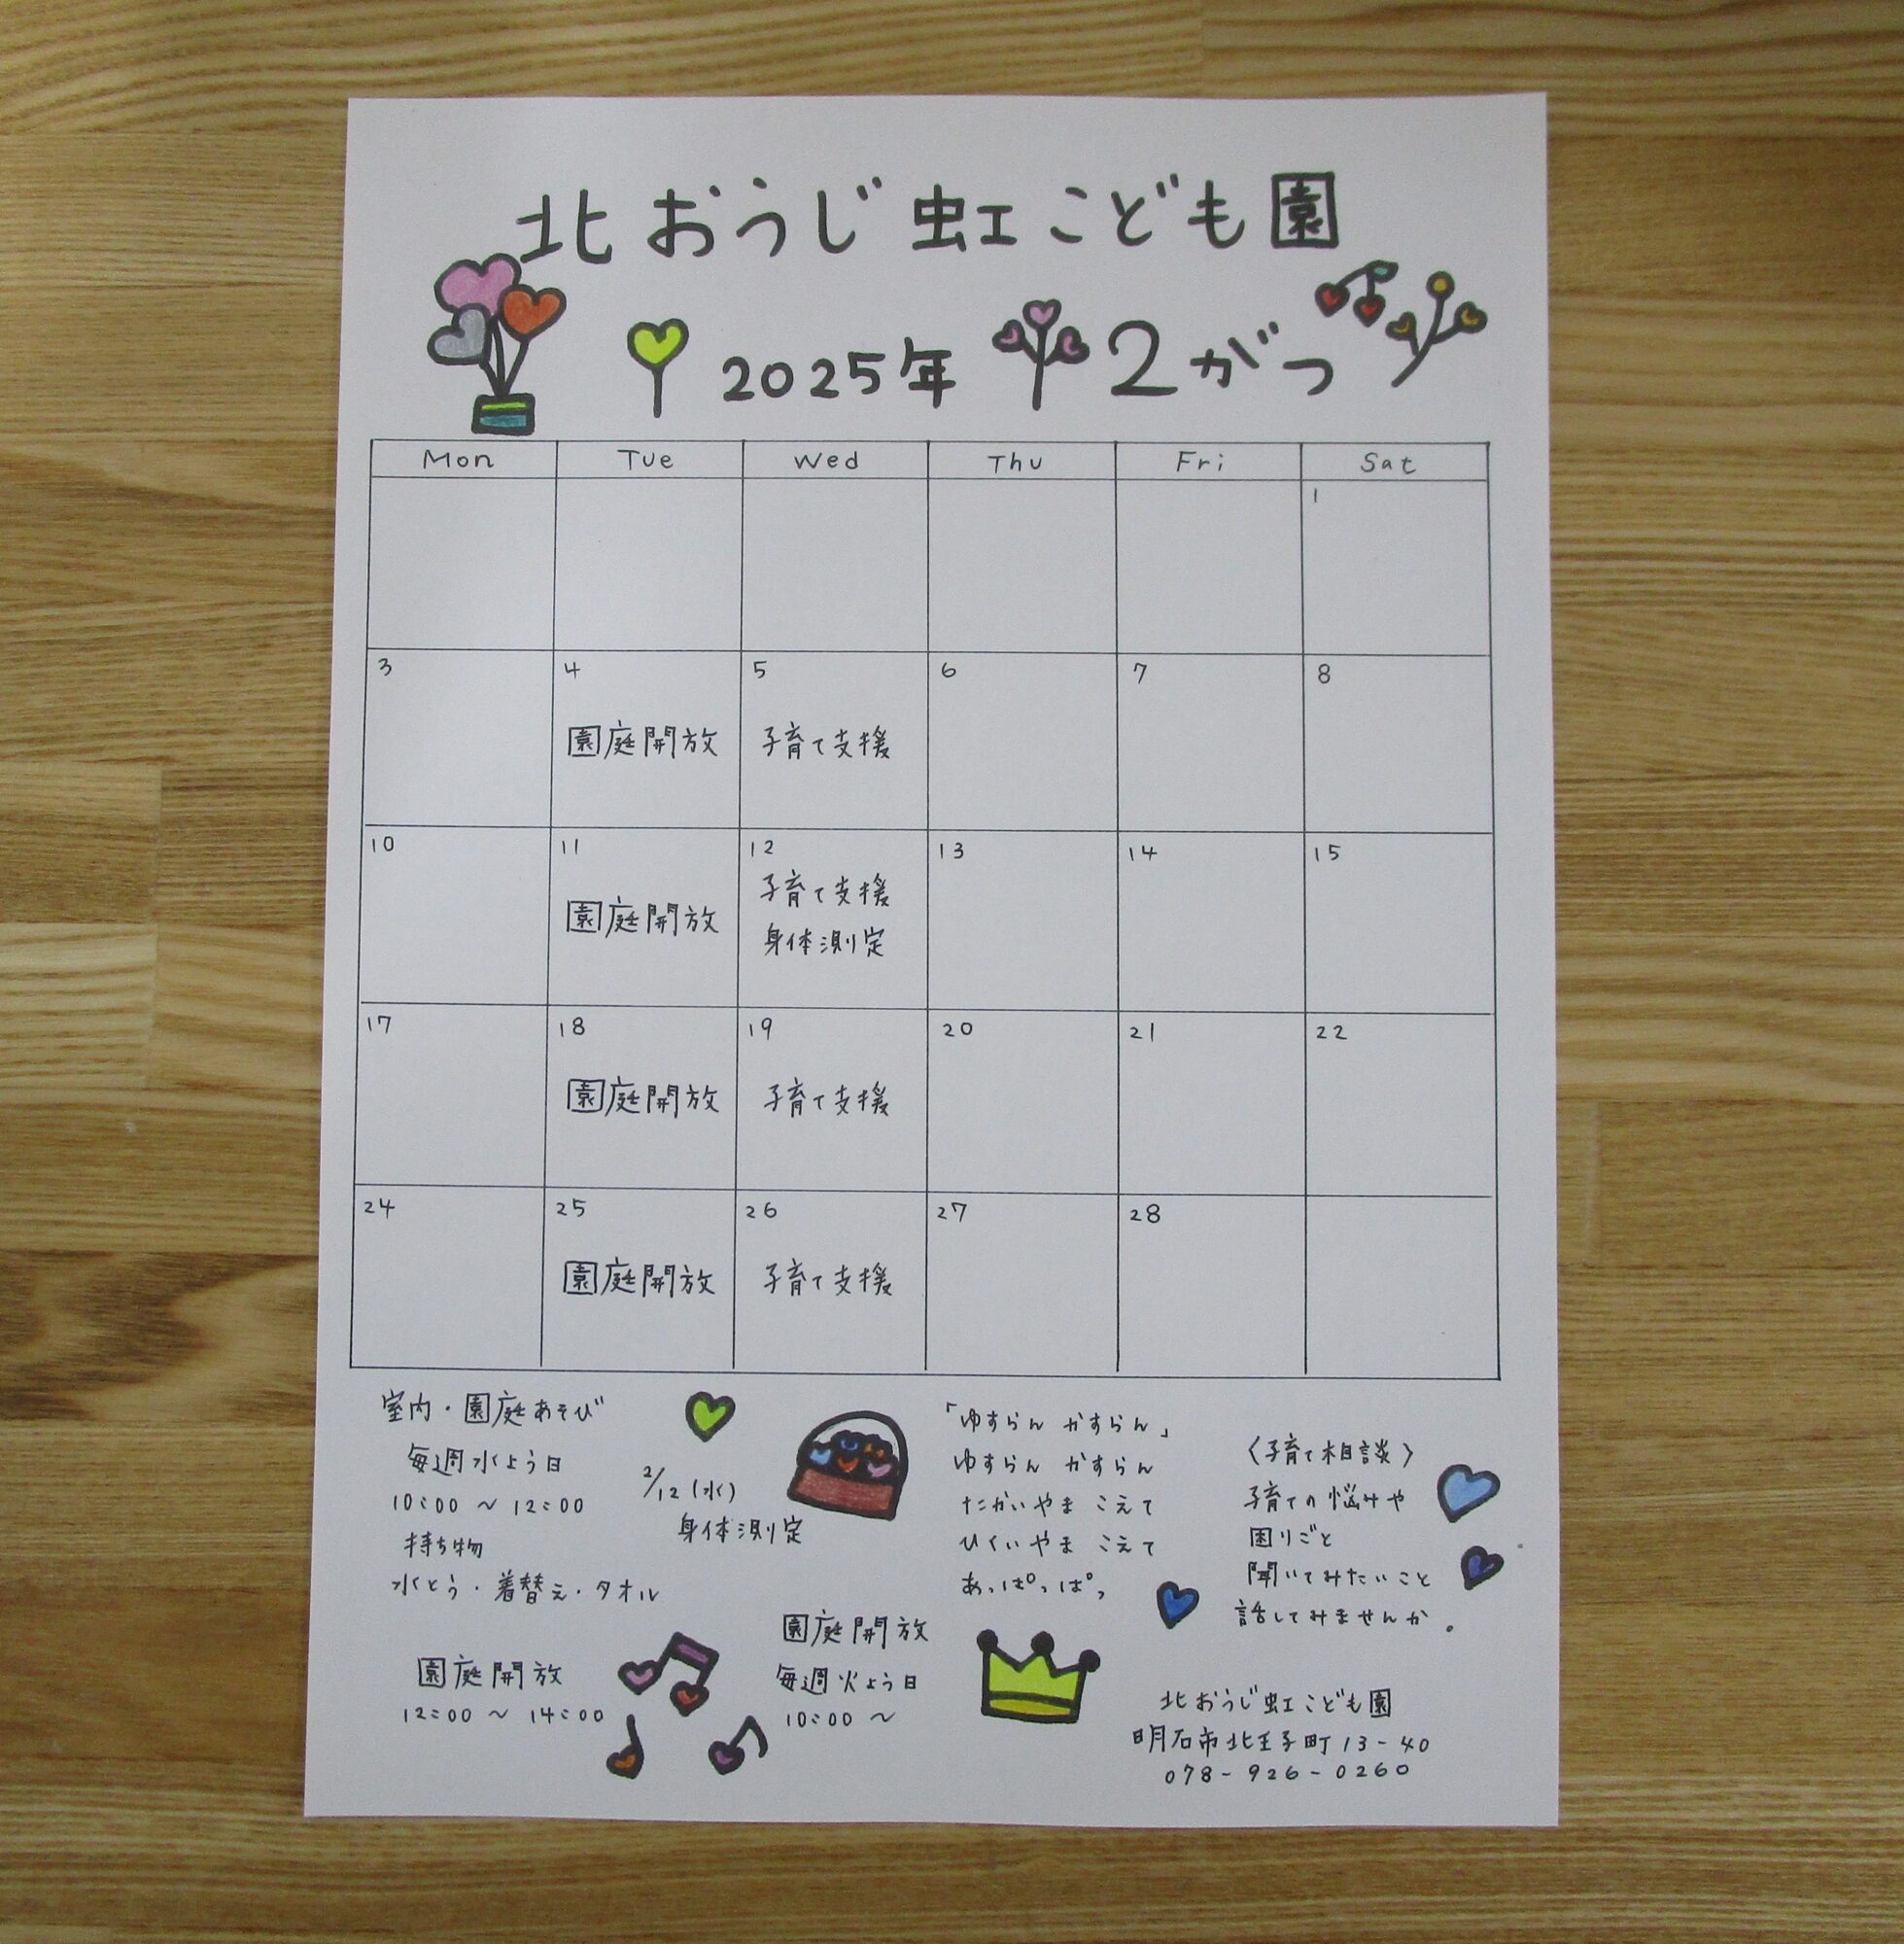 北おうじ虹こども園
2025年 2がつ
Mon Tue Wed Thu Fri Sat
1
3 4 5 6 7 8
園庭開放 子育て支援
10 11 12 13 14 15
園庭開放 子育て支援
身体測定
17 18 19 20 21 22
園庭開放 子育て支援
24 25 26 27 28
園庭開放 子育て支援
室内・園庭あそび
毎週水よう日
10:00 ~ 12:00
持ち物
水とう・着替え・タオル
園庭開放
12:00 ~ 14:00
2/12(水)
身体測定
園庭開放
毎週火よう日
10:00 ~
「ゆすらん かすらん」
ゆすらん かすらん
たかいやま こえて
ひくいやま こえて
あっぱっぱっ
〈子育て相談〉
子育ての悩みや
困りごと
聞いてみたいこと
話してみませんか。
北おうじ虹こども園
明石市北王子町13-40
078-926-0260